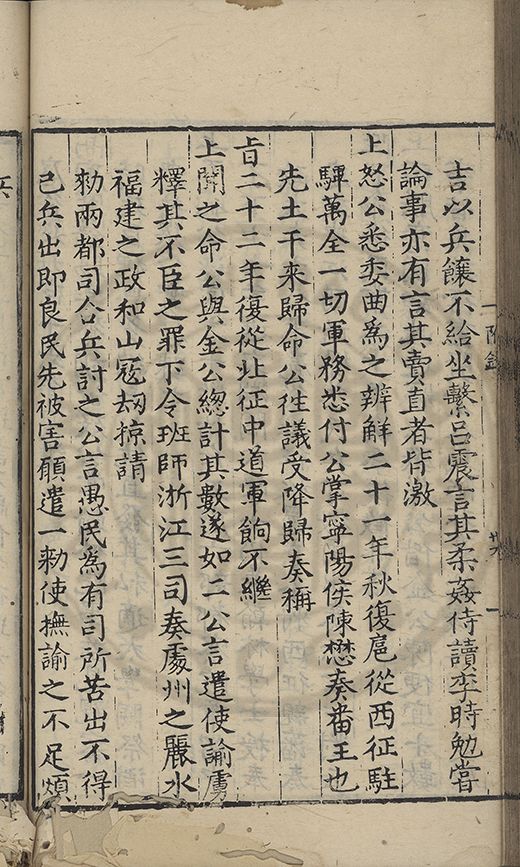 吉以兵饟不給坐繫呂震言其柔姦侍讀李時勉嘗
論事亦有言其賣直者皆激
上怒公悉委曲為之辨解二十一年秋復扈從西征駐
驆萬全一切軍務悉付公掌寧陽侯陳懋奏番王也
先土干來歸命公往議受降歸奏稱
旨二十二年復從北征中道軍餉不繼
上聞之命公與金公總計其數遂如二公言遣使諭虜
釋其不臣之罪下令班師浙江三司奏處州之麗水
福建之政和山寇刼掠請
勑兩都司合兵討之公言愚民為有司所苦出不得
已兵出即良民先被害願遣一勑使撫諭之不足煩
兵